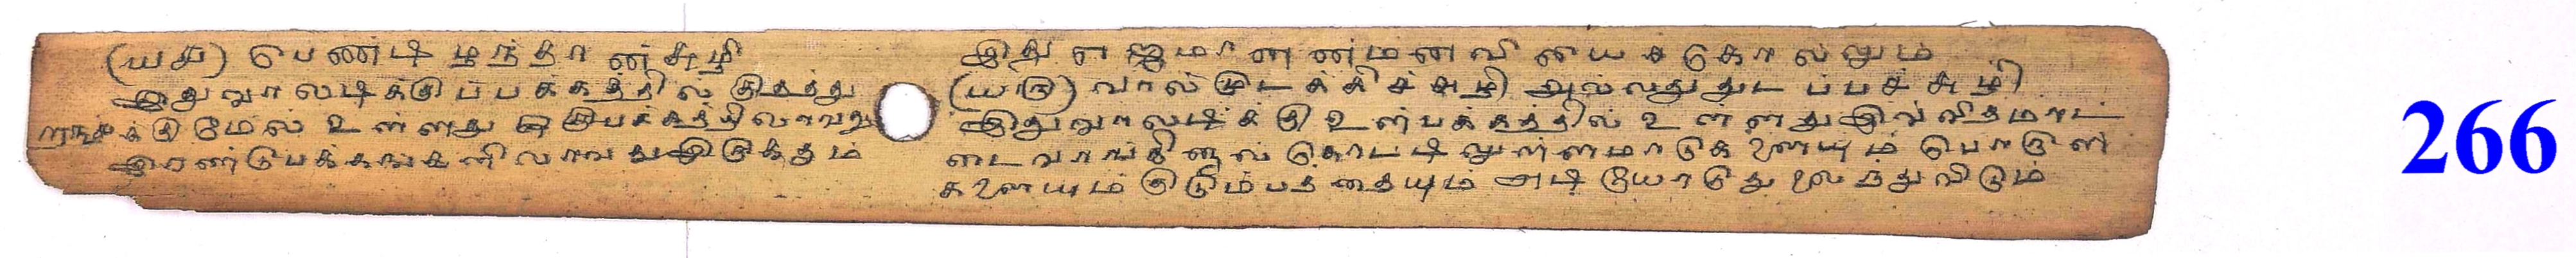 (௰௪) பெண்டிழந்தான்சுழி
இதுவாலடிக்குப்பக்கத்தில் குதத்து
க்கு மேல் உள்ளது இருபக்கத்திலாவது
இரண்டுபக்கங்களிலாவதுஇடுக்தம்
இது எஜமானன்மனவியைக்கொல்லும்
(௰௫) வால்முடக்கிச்சுழி அல்லதுதுடப்பச்சுழி
இதுவாலடிக்கு உள்பக்கத்தில் உள்ளதுஇவ்விதமாட்
டைவாங்கினால் கொட்டிலுள்ளமாடுகளையும் பொருள்
களையும் குடும்பத்தையும் அடியோடுதுலைந்துவிடும்
266